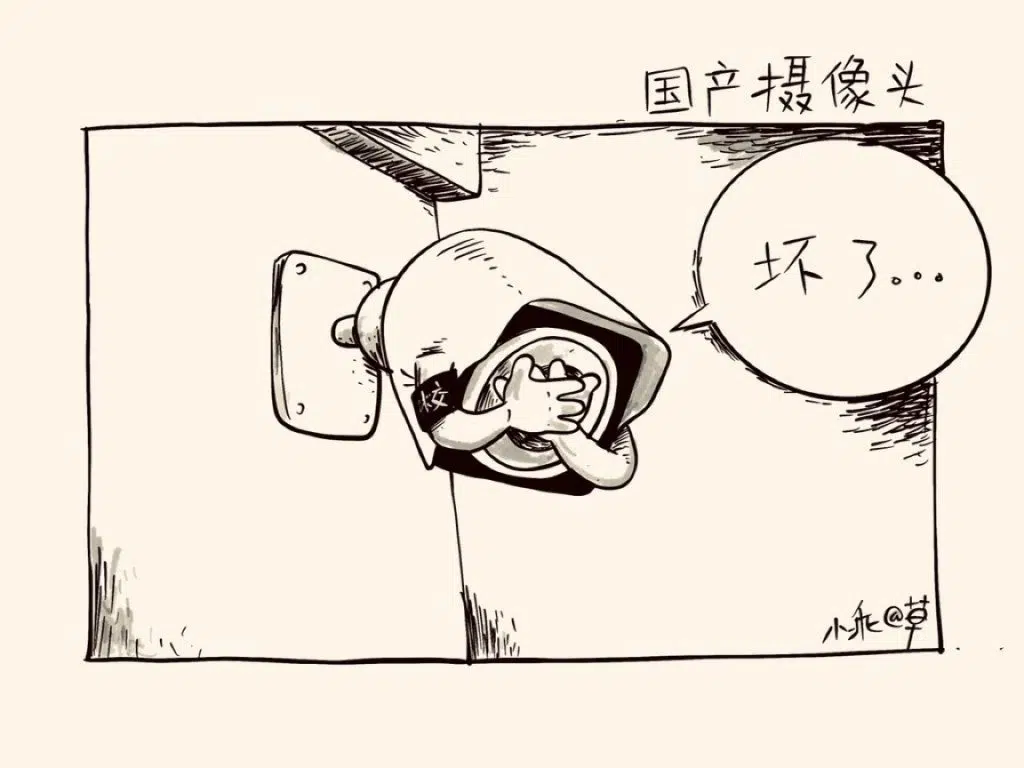 国产摄像头
坏了...
校
小乖@草